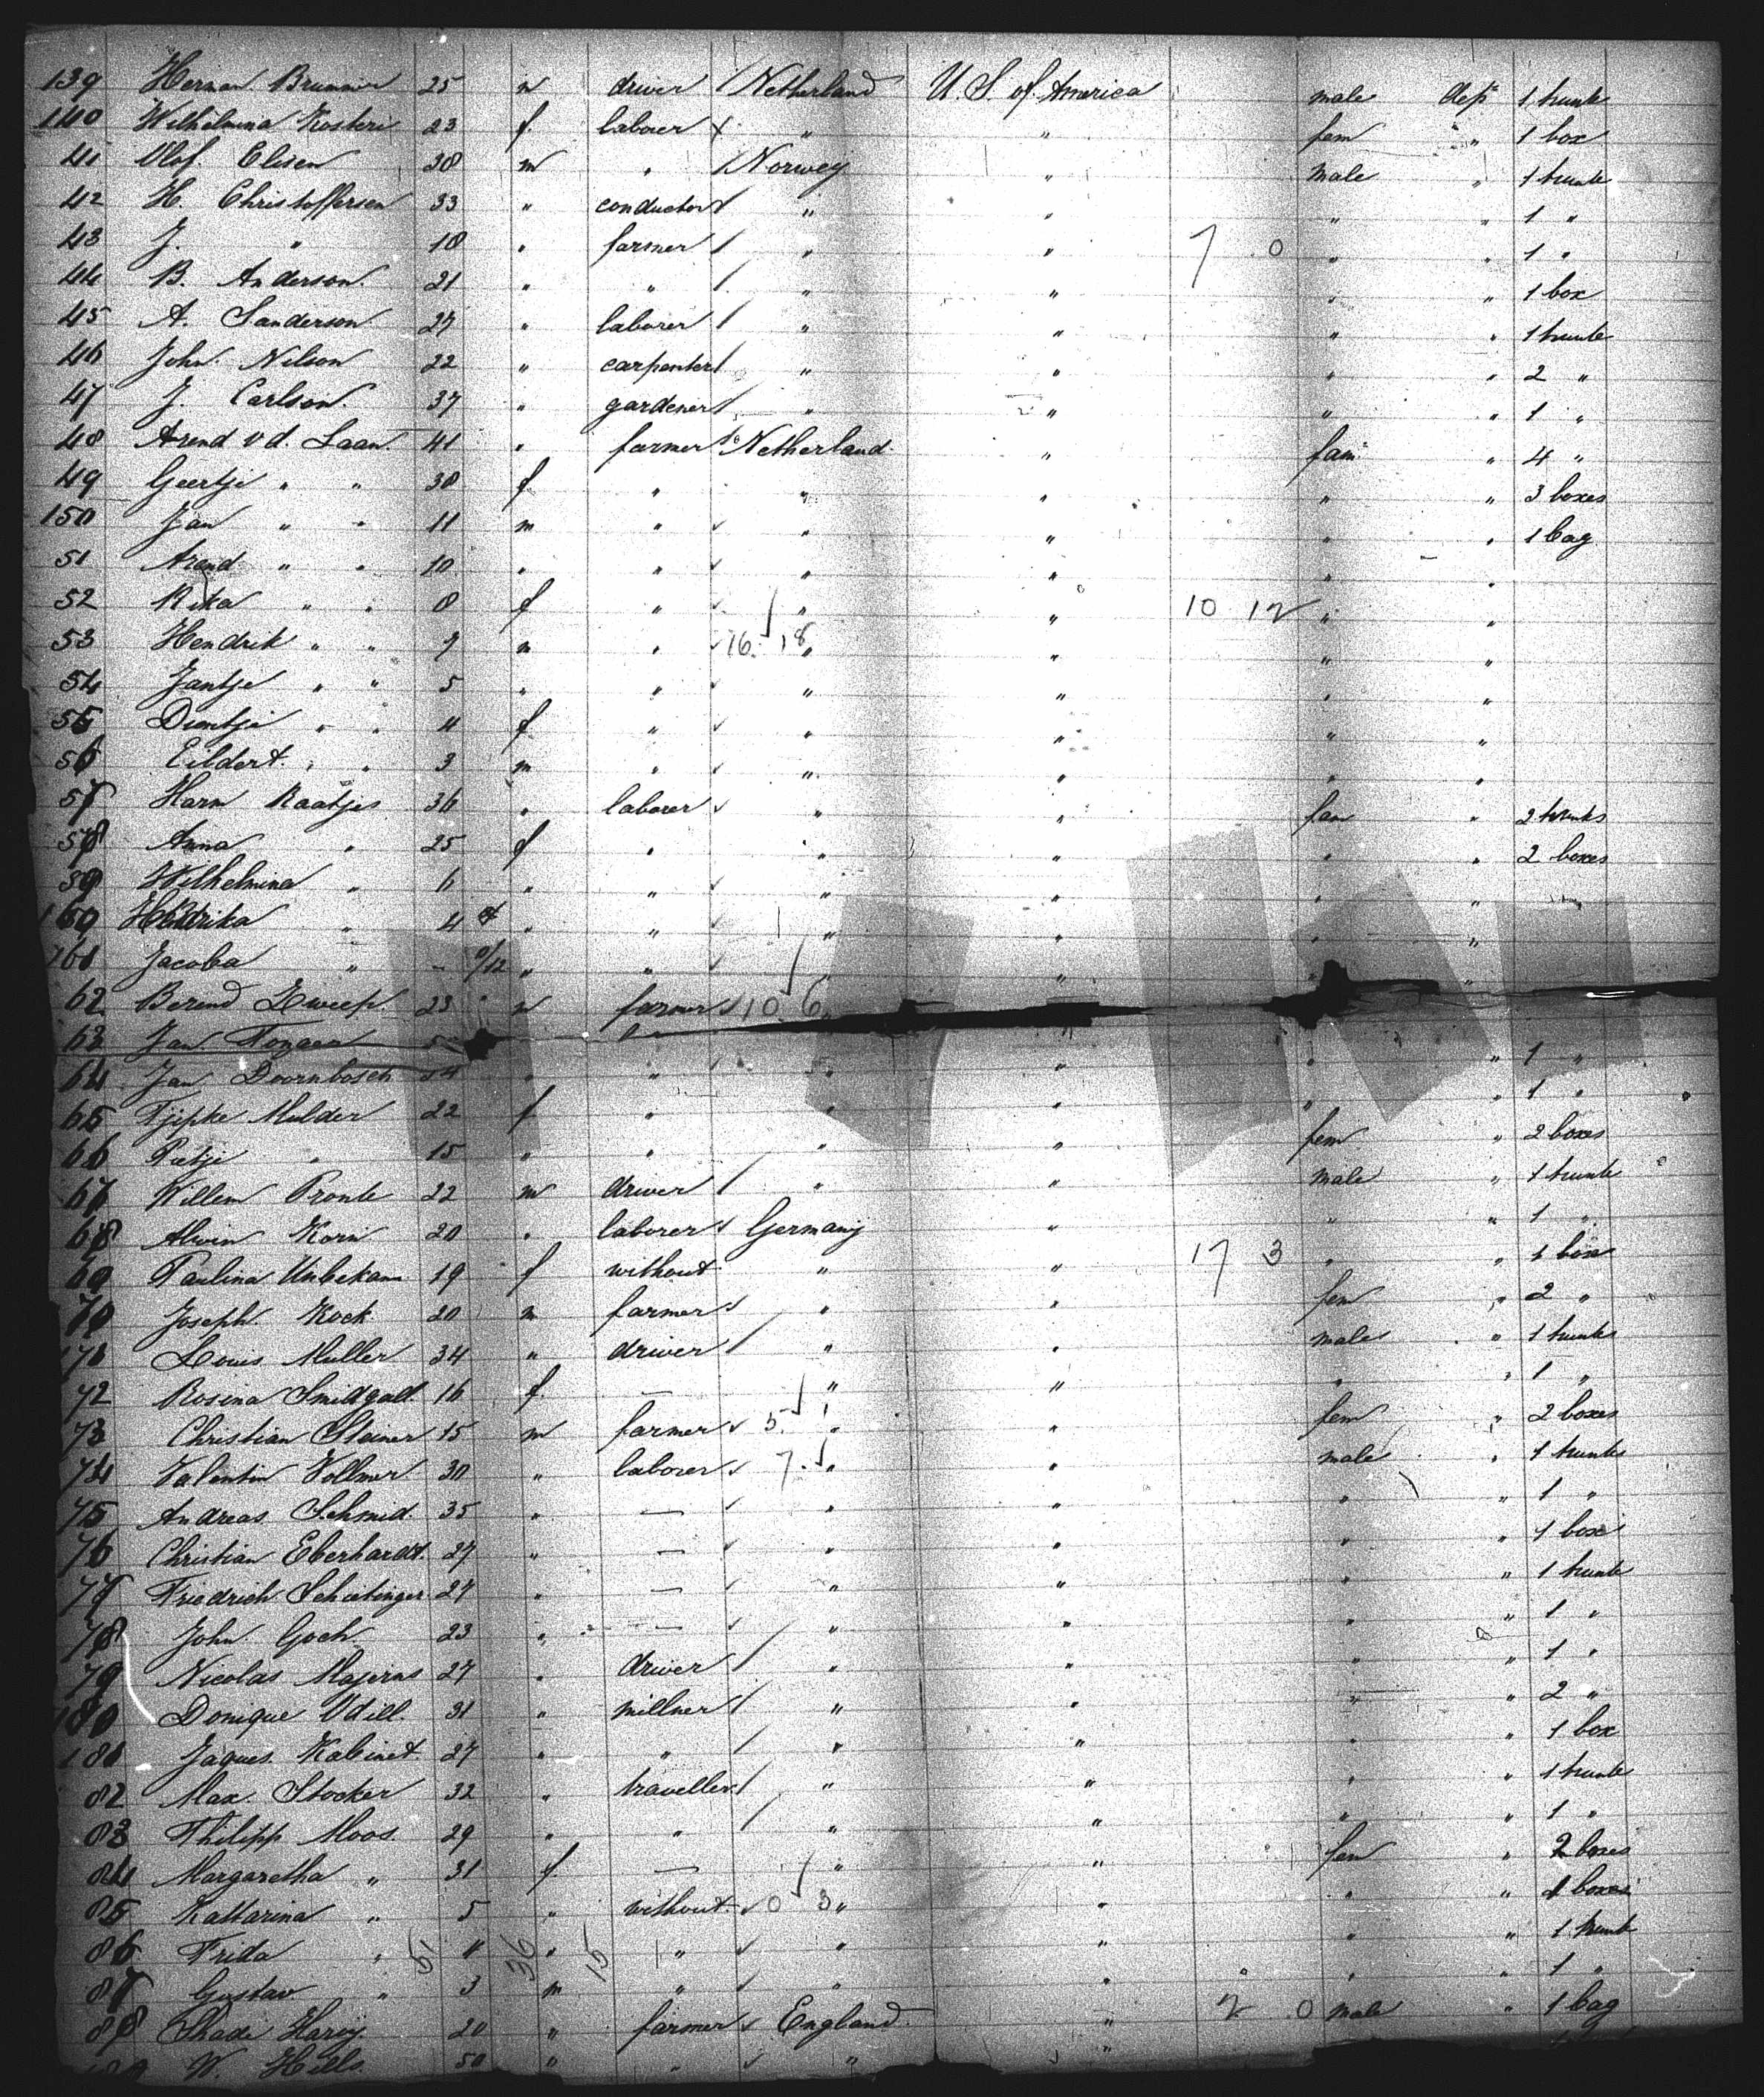 139 Herman Brummer 25 m driver Netherland U. S. of America male dep 1 trunk
140 Wilhelmina Kosteri 23 f. laborer " " fem " 1 box
41 Olof. Elisen 38 m " Norwey " male " 1 trunk
42 H. Christoffersen 33 " conductor " " " " 1 "
43 J. " 18 " farmer " " 7 0 " " 1 "
44 B. Anderson. 21 " " " " " " 1 box
45 A. Sanderson 27 " laborer " " " " 1 trunk
46 John Nilson 22 " carpenter " " " " 2 "
47 J. Carlson. 37 " gardener " " " " 1 "
48 Arend v d. Laan. 41 " farmer Netherland. " fam " 4 "
49 Geertje " " 38 f " " " " " 3 boxes
150 Jan " " 11 m " " " " " 1 bag
51 Arend " " 10 " " " " " "
52 Rika " " 8 f " " " 10 12 " "
53 Hendrik " " 7 m " 16 18 " " " "
54 Jantje " " 5 " " " " " "
55 " " 4 f " " " " "
56 Eildert. " " 3 m " " " " "
57 Harm Raatjes 36 " laborer " " fam " 2 trunks
58 Anna " 25 f " " " " " 2 boxes
59 Wilhelmina " 6 " " " " " "
160 Hendrika " 4 " " " " " "
161 Jacoba " - /12 " " " " " "
62 Berend Zweep. 23 m farmer 10 6
63 Jan " " 1 "
64 Jan Doornbosch " " " " " 1 "
65 Tjipke Mulder 22 f " " " fem " 2 boxes
66 " 15 " " " "
67 Willem Pronk 22 m driver " " male " 1 trunk
68 Alwin Korn 20 " laborer Germany " " " 1 "
69 Paulina Unbekam 19 f without " " 17 3 " " 1 box
70 Joseph Kock 20 m farmer " " fem " 2 "
171 Louis Muller 34 " driver " " male " 1 trunks
72 Rosina 16 f. — " " " " 1 "
73 Christian Steiner 15 m farmer 5 " " fem " 2 boxes
74 Valentin Vollmer 30 " laborer 7 " " male " 1 trunks
75 Andreas Schmid. 35 " — " " " " 1 "
76 Christian Eberhardt. 27 " — " " " " 1 box
77 Friedrich 27 " — " " " " 1 trunk
78 John Goch 23 " — " " " " 1 "
79 Nicolas Majerus 27 " driver " " " " 1 "
180 Donique Udill. 31 " millner " " " " 2 "
181 Jaques Kabinet. 27 " " " " " 1 box
82 Max Stocker 32 " traveller " " " " 1 trunk
83 Philipp Moos. 29 " " " " " " 1 "
84 Margaretha " 31 f. — " " fem " 2 boxes
85 Kattarina " 5 " without 0 3 " " " " 1 boxes
86 Frida " 51 4 36 " 15 " " " " " 1 trunk
87 Gustav " 3 m " " " " " 1 "
88 Harry. 20 " farmer England " 2 0 male " 1 bag
189 W. Hills. 50 " " " "